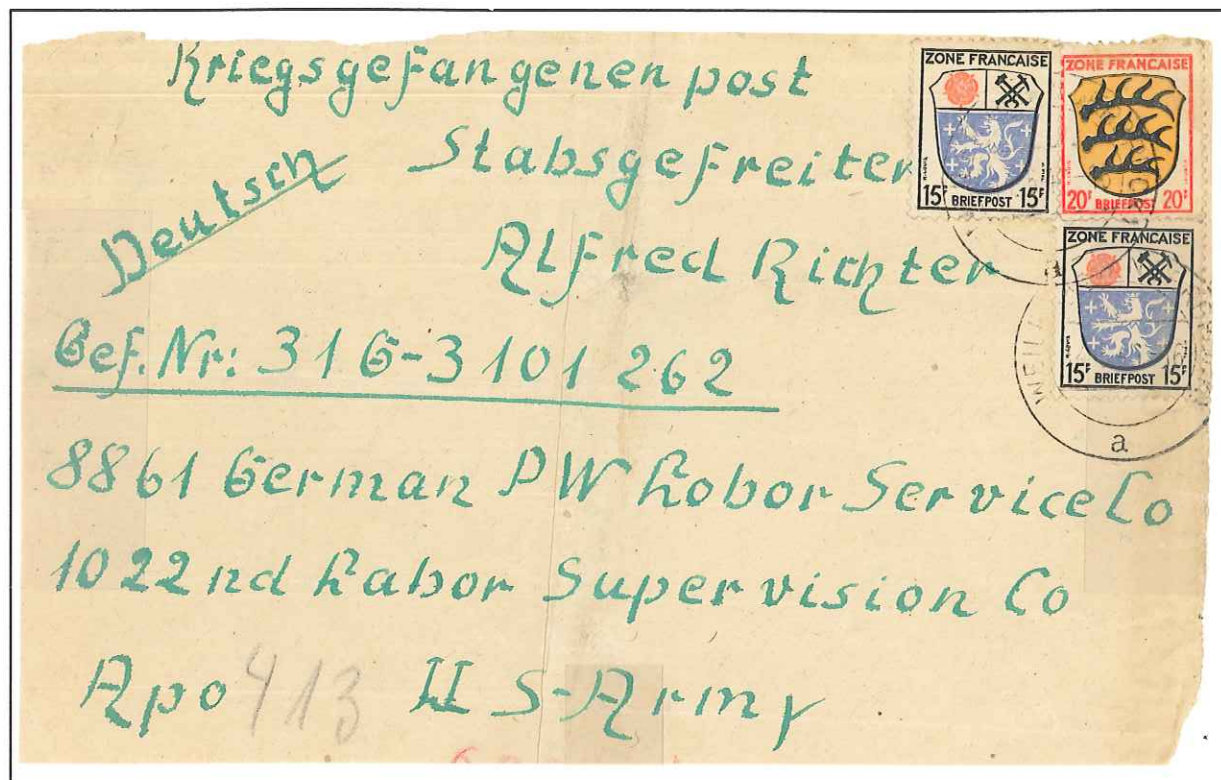 Kriegsgefangenenpost
Stabsgefreiter
Deutsch
Alfred Richter
Gef. Nr: 31G-3101 262
8861 German PW Lobor Service Co
1022nd Labor Supervision Co
Apo 413 US-Army
ZONE FRANCAISE
15F BRIEFPOST 15F
ZONE FRANCAISE
20F BRIEFPOST 20F
ZONE FRANCAISE
15F BRIEFPOST 15F
a
a